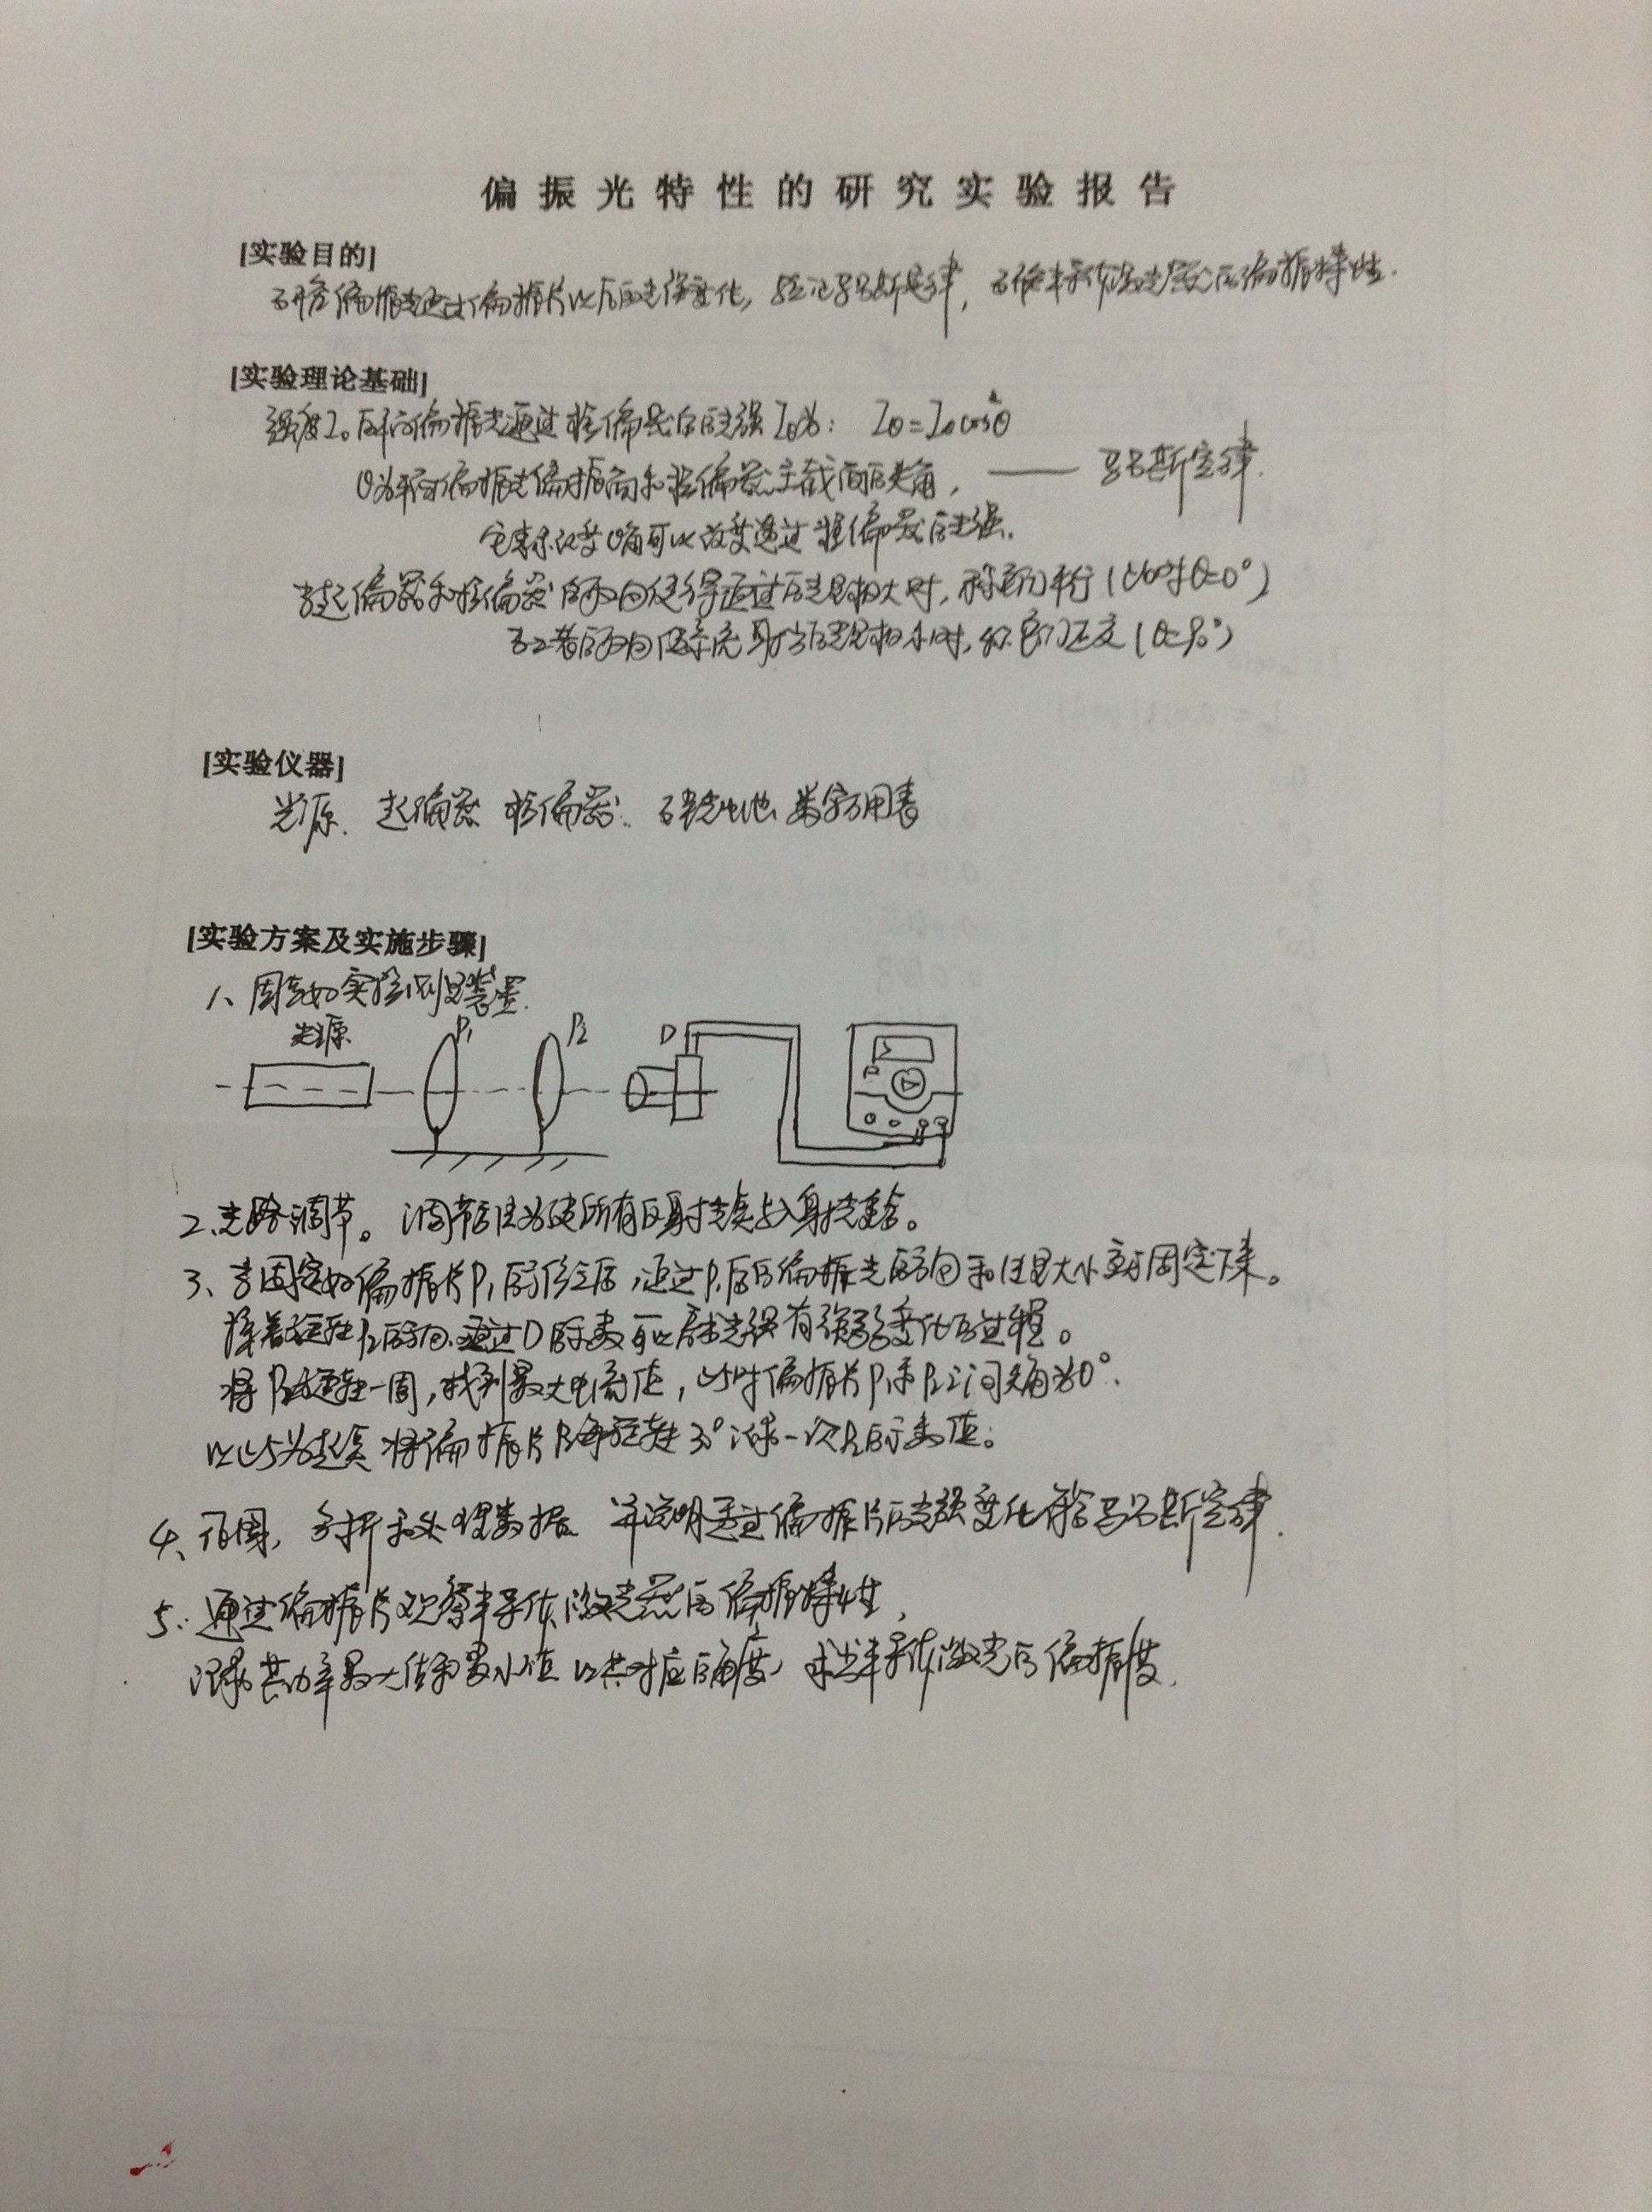 偏振光特性的研究实验报告
[实验目的]
研究偏振光通过偏振片以后的光强变化，验证马吕斯定律，研究半导体激光器的偏振特性.
[实验理论基础]
强度I₀的平面偏振光通过检偏器后的光强Iθ为： Iθ=I₀cos²θ
θ为平面偏振光偏振面和检偏器主截面的夹角， —— 马吕斯定律.
它表示改变θ角可以改变透过检偏器的光强.
当起偏器和检偏器的取向使得通过的光量极大时，称它们平行(此时θ=0°)
当二者的取向使系统射出的光量极小时，称它们正交(θ=90°)
[实验仪器]
光源. 起偏器 检偏器. 硅光电池 数字万用表
[实验方案及实施步骤]
1、固定好实验仪器装置.
光源 P₁ P₂ D
2、光路调节。调节后使所有反射光点与入射光重合。
3、当固定好偏振片P₁的位置后，通过P₁后的偏振光的方向和能量大小就固定下来。
接着旋转P₂的方向.通过D的示数可以看出光强有强弱变化的过程。
将P₂旋转一周，找到最大电流值，此时偏振片P₁和P₂之间夹角为0°.
以此为起点 将偏振片P₂每旋转3°记录一次P₂的示数值。
4、作图，分析和处理数据 并说明透过偏振片的光强变化符合马吕斯定律.
5. 通过偏振片观察半导体激光器的偏振特性，
记录其功率最大值和最小值 以其对应的角度，求出半导体激光的偏振度.